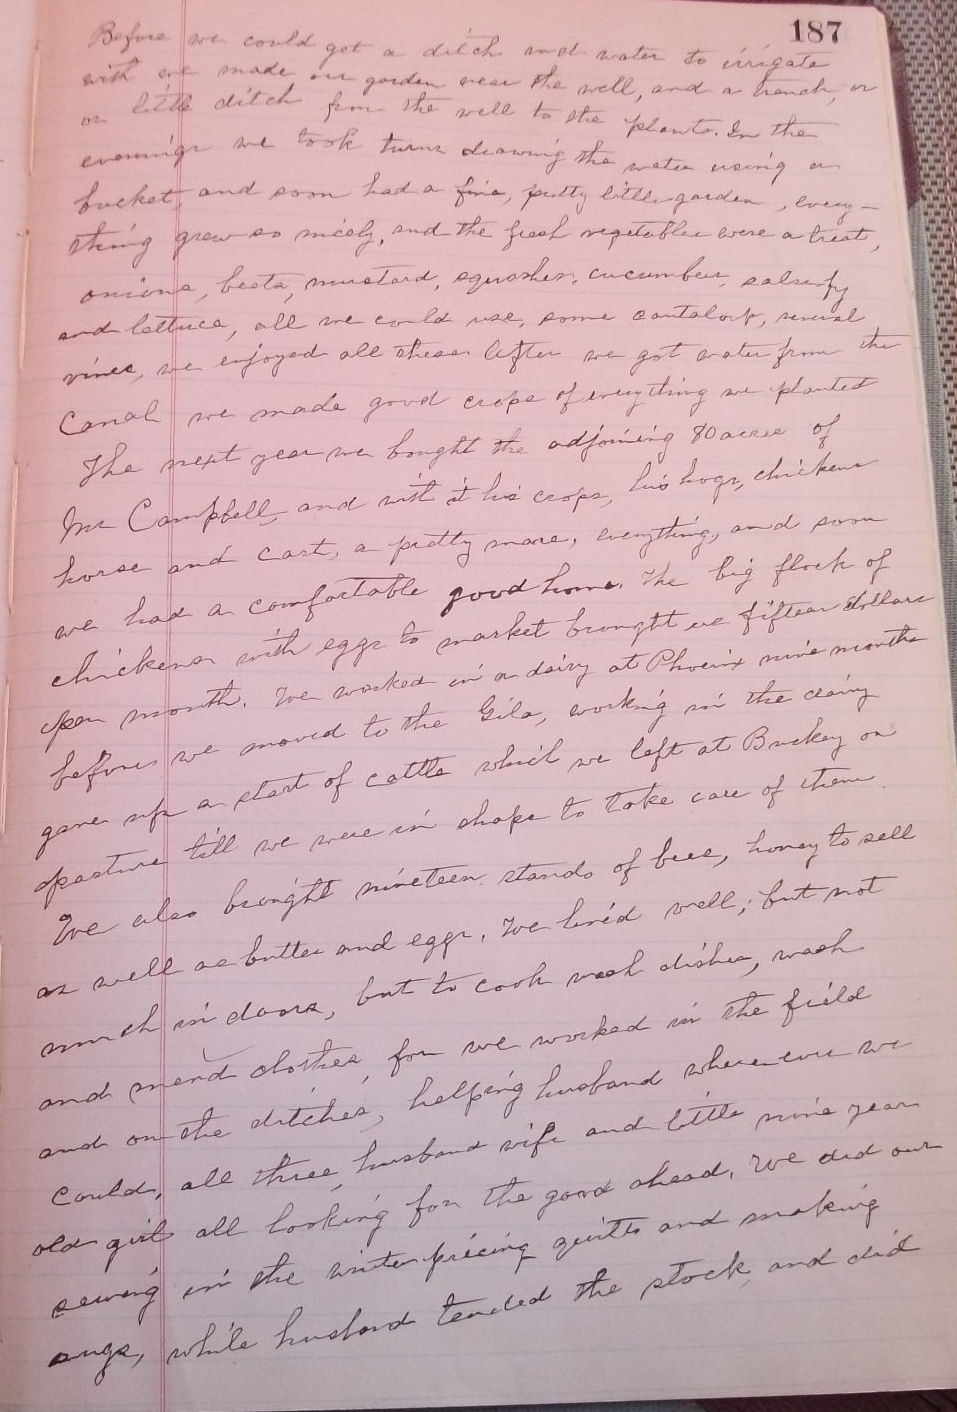 187
Before we could get a ditch and water to irrigate
with we made our garden near the well, and a trench, or
or little ditch from the well to the plants. In the
evenings we took turns drawing the water using a
bucket, and soon had a fine, pretty little garden, every-
thing grew so nicely, and the fresh vegetables were a treat,
onions, beets, mustard, squashes, cucumber, salsify
and lettuce, all we could use, some cantalop, several
vines, we enjoyed all these. After we got water from the
Canal we made good crops of everything we planted
The next year we bought the adjoining 80 acres of
Mr Campbell, and with it his crops, his hogs, chickens
horse and cart, a pretty mare, everything, and soon
we had a comfortable good home. The big flock of
chickens with eggs to market brought us fifteen dollars
per month. We worked in a dairy at Phoenix nine months
before we moved to the Gila, working in the dairy
gave us a start of cattle which we left at Buckey on
pasture till we were in shape to take care of them
We also brought nineteen stands of bees, honey to sell
as well as butter and eggs. We lived well; but not
much in doors, but to cook wash dishes, wash
and mend clothes, for we worked in the field
and on the ditches, helping husband where ever we
could, all three, husband wife and little nine year
old girl all looking for the good ahead. We did our
sewing in the winter piecing quilts and making
rugs, while husband tended the stock, and did